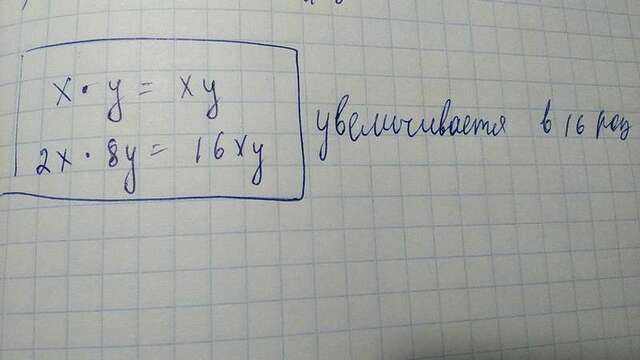 x · y = xy
2x · 8y = 16xy
увеличивается в 16 раз